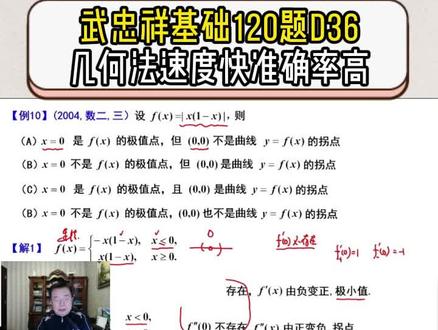 武忠祥基础120题D36
几何法速度快准确率高
【例10】(2004,数二,三) 设 f(x)=|x(1-x)|, 则
(A) x=0 是 f(x) 的极值点,但 (0,0) 不是曲线 y=f(x) 的拐点
(B) x=0 不是 f(x) 的极值点,但 (0,0) 是曲线 y=f(x) 的拐点
(C) x=0 是 f(x) 的极值点,且 (0,0) 是曲线 y=f(x) 的拐点
(B) x=0 不是 f(x) 的极值点, (0,0) 也不是曲线 y=f(x) 的拐点
【解1】 f(x)={ -x(1-x), x≤0,
x(1-x), x≥0.
0
f'(0) 不存在
f'₊(0)=1 f'₋(0)=-1
存在, f'(x) 由负变正, 极小值.
x<0,
f''(0) 不存在 f''(x) 由正变负, 拐点